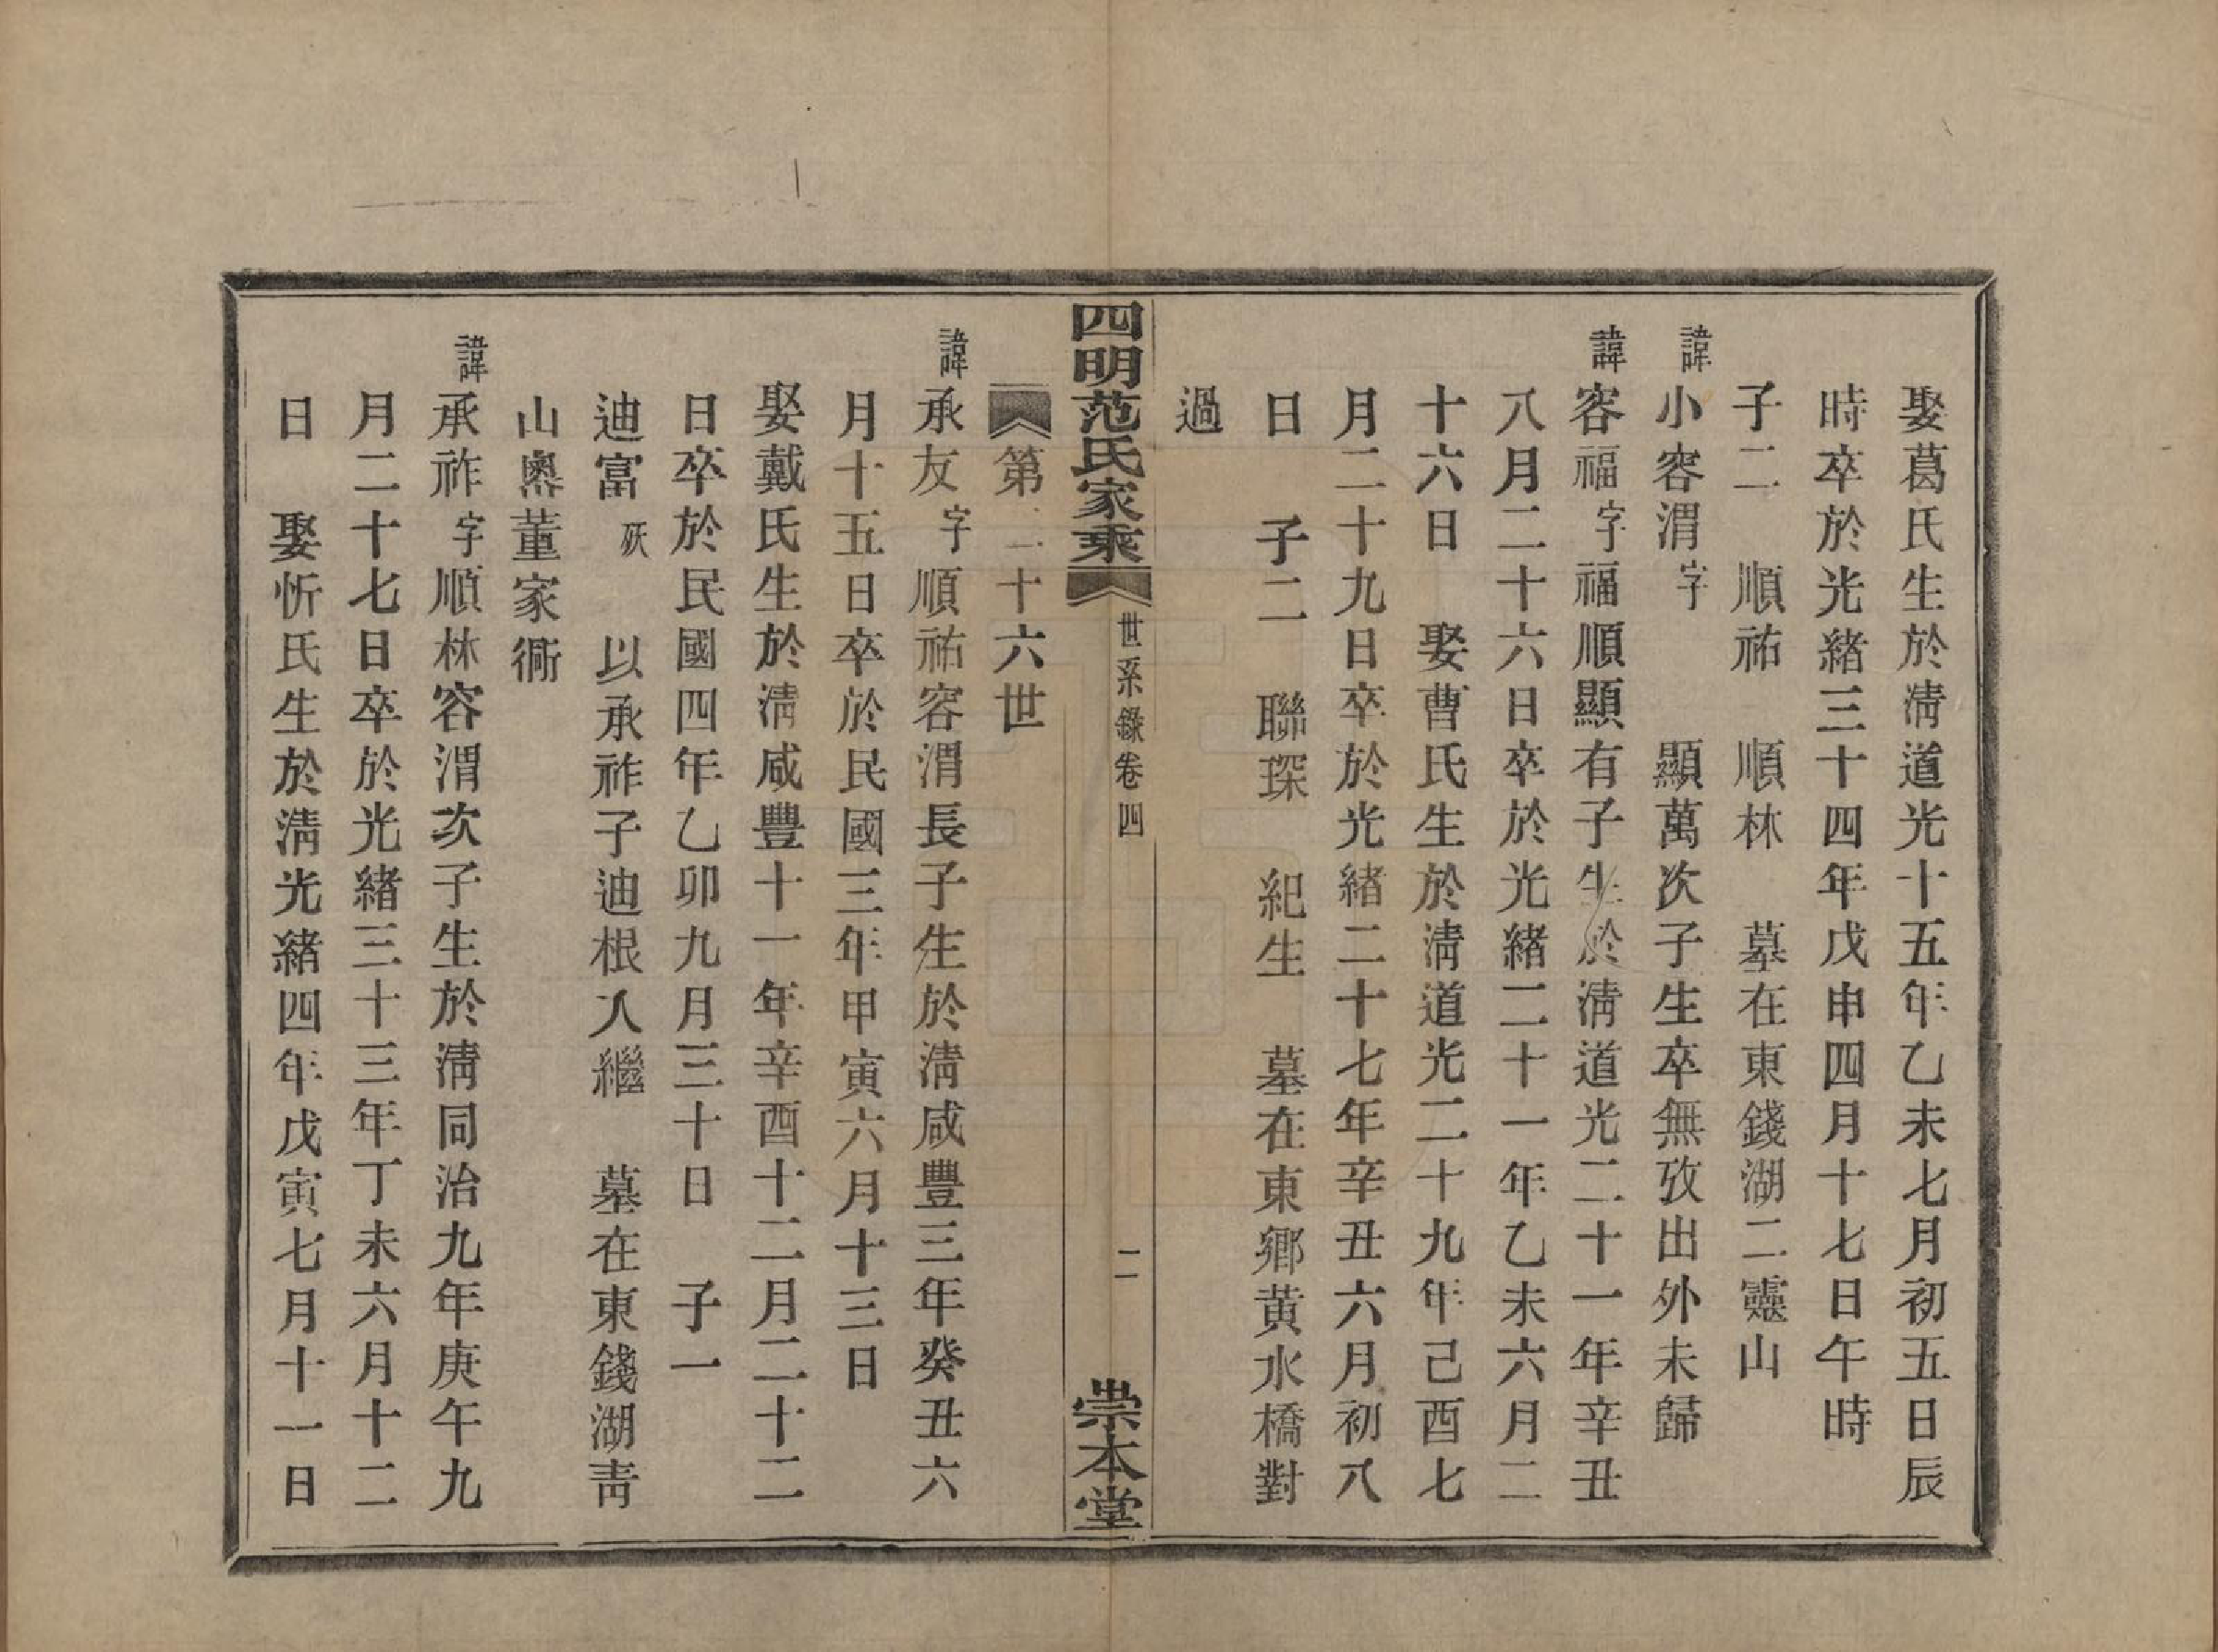 娶葛氏生於淸道光十五年乙未七月初五日辰
時卒於光緖三十四年戊申四月十七日午時
子二　順祐　順林　墓在東錢湖二靈山
諱小容渭字　　顯萬次子生卒無攷出外未歸
諱容福字福順顯有子生於淸道光二十一年辛丑
八月二十六日卒於光緖二十一年乙未六月二
十六日　娶曹氏生於淸道光二十九年己酉七
月二十九日卒於光緖二十七年辛丑六月初八
日　子二　聯琛　紀生　墓在東鄉黃水橋對
過
四明范氏家乘　世系錄卷四　二　崇本堂
第二十六世
諱承友字順祐容渭長子生於淸咸豐三年癸丑六
月十五日卒於民國三年甲寅六月十三日
娶戴氏生於淸咸豐十一年辛酉十二月二十二
日卒於民國四年乙卯九月三十日　子一
迪富殀　以承祚子迪根入繼　墓在東錢湖靑
山嶴董家衕
諱承祚字順林容渭次子生於淸同治九年庚午九
月二十七日卒於光緖三十三年丁未六月十二
日　娶忻氏生於淸光緖四年戊寅七月十一日